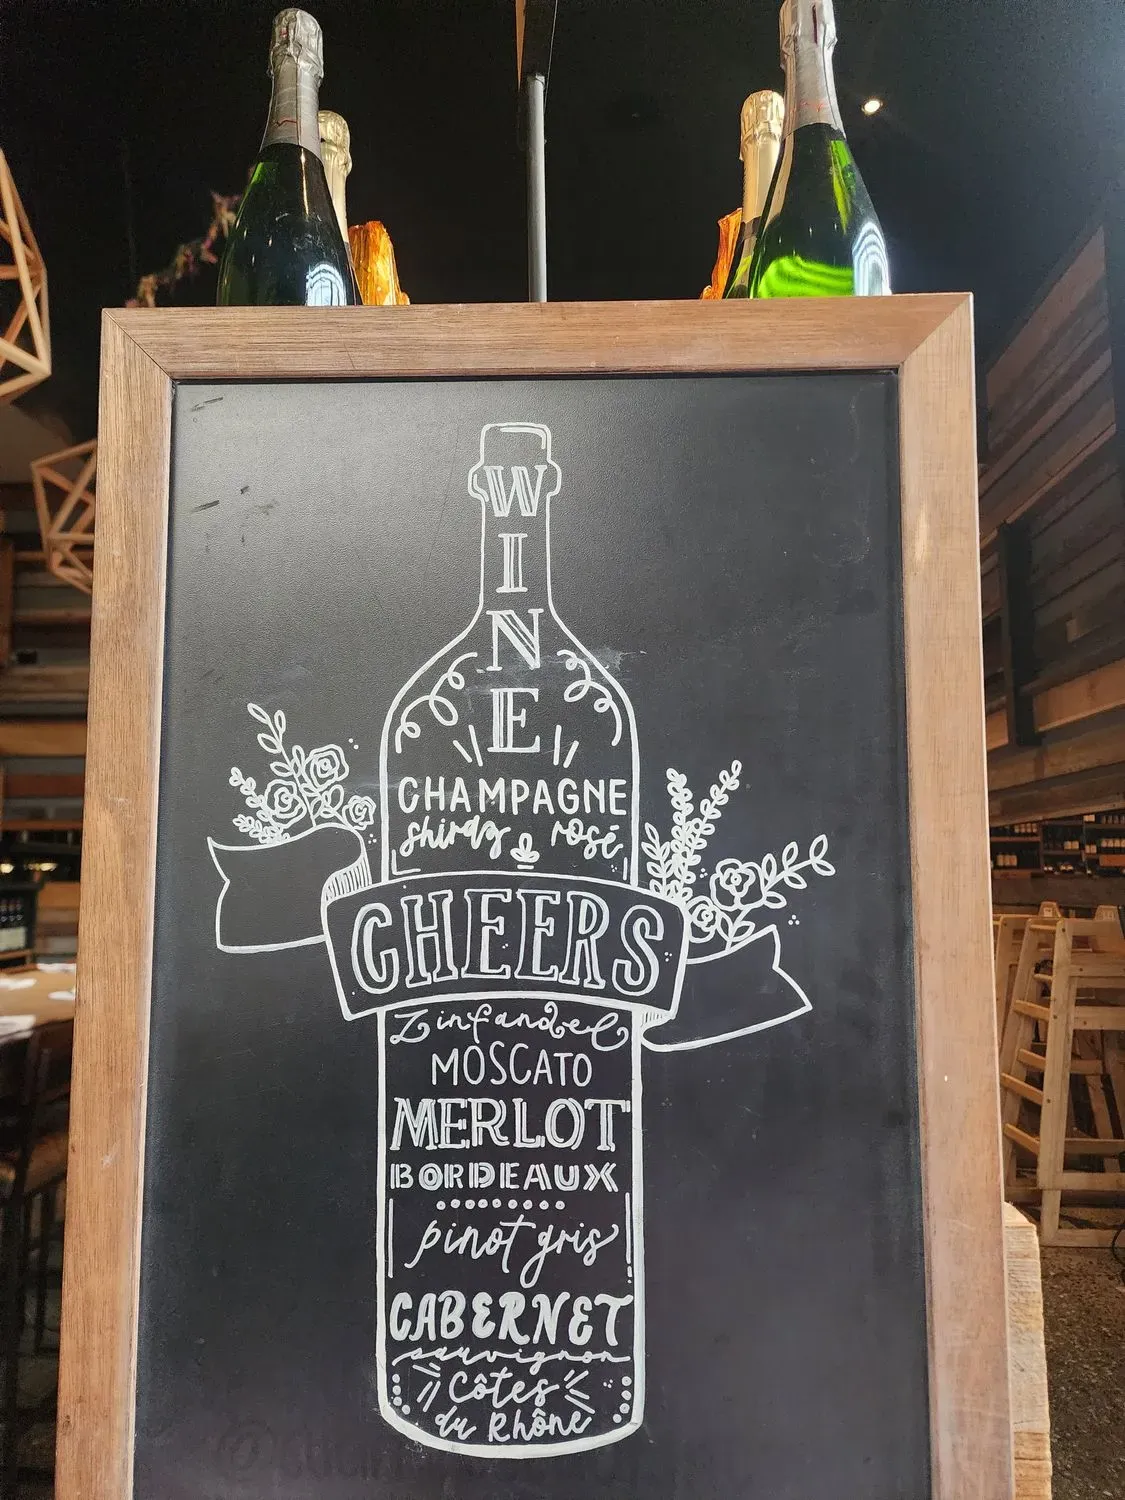 WINE
CHAMPAGNE
shiraz rosé
CHEERS
Zinfandel
MOSCATO
MERLOT
BORDEAUX
pinot gris
CABERNET
sauvignon
Côtes
du Rhône